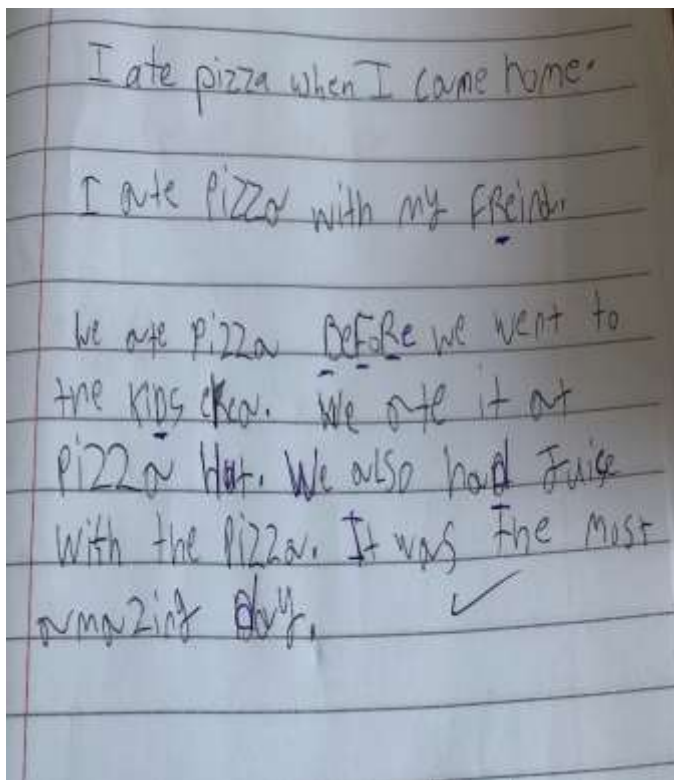 I ate pizza when I came home.
I ate pizza with my FReind.
We ate pizza BeFoRe we went to
the KiDs area. We ate it at
PiZZa Hut. We also had Juice
with the pizza. It was the most
amazing day.